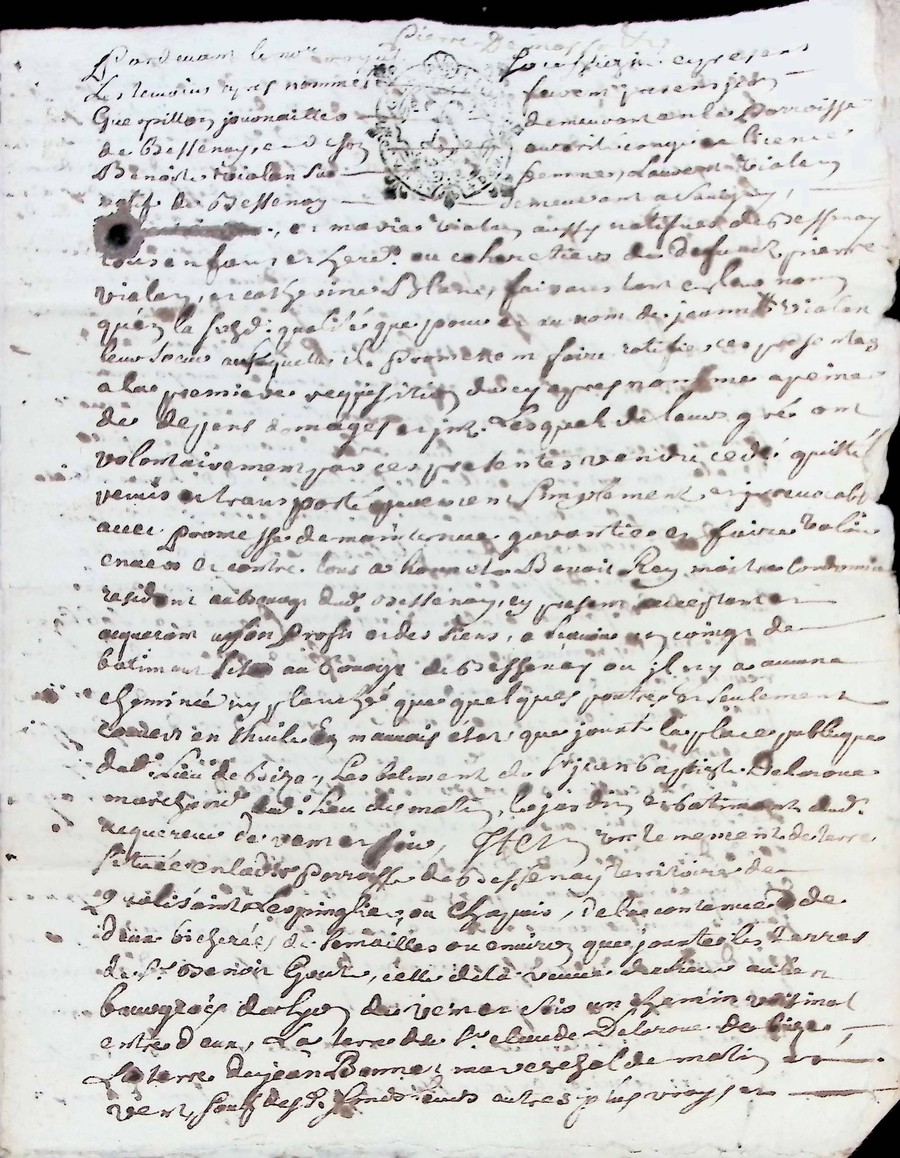 Pierre
Pardevant le no.re royal soussigné et presens
Les temoins apres nommés furent presens
journaillier demeurant en la Parroisse
de Bessenay, et de son autorité congé et licence
Benoite Vialon sa femme, Laurent Vialon
natif de Bessenay demeurant a Savigny,
et marie Vialon aussy natifve de Bessenay
tous enfans et her.s ou coheretiers de defunt pierre
Vialon, et catherine Blanc, faisant tant en leur nom
qu'en la susd. qualité que pour et au nom de jeanne Vialon
leur soeur promettent faire ratifier ces presentes
a la premiere requisition du cy apres nommé a peine
de depens domages et jnt. Lesquels de leurs gré ont
volontairement par ces presentes vendu cedé quitté
remis et transporté purement simplement et jrrevocabl
avec promesse de maintenue garantie et faire valoir
envers et contre tous a honnete Benoit Rey maitre Cordonnier
residant au bourg dud. Bessenay, cy present acceptant et
aquerant a son Profit et des siens, a Scavoir un coing de
batiment scitué au bourg de Bessenay ou jl n'y a aucune
cheminée ny planché que quelques poutres et seulement
couvert en thuile en mauvais état que joint la place publique
dud. Lieu de bize, Les batiment de S.r jean Baptiste Delorme
marchand dud. Lieu de matin, le jardin et batiment dud.
aquereur de vent et soir, Item un tenement de terre
située en ladite Parroisse de Bessenay territoire de
ou Chapuis, de la contenue de
deux bicherées de semailles ou environ que jouxte les terres
de S.r Benoit, celle de la veuve de sieur
bourgeois de Lyon de vent et soir un chemin vicinal
entre deux, La terre de S.r claude Delorme de bize,
La terre de jean Bonnet mareschal de matin et
vent, sauf desd. fonds leurs autres plus vrays et